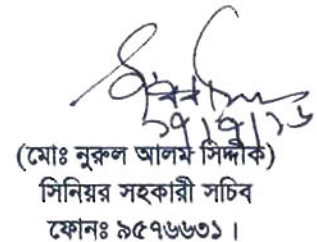 ২৭।৭।১৬
(মোঃ নুরুল আলম সিদ্দীক)
সিনিয়র সহকারী সচিব
ফোনঃ ৯৫৭৬৬৩১।